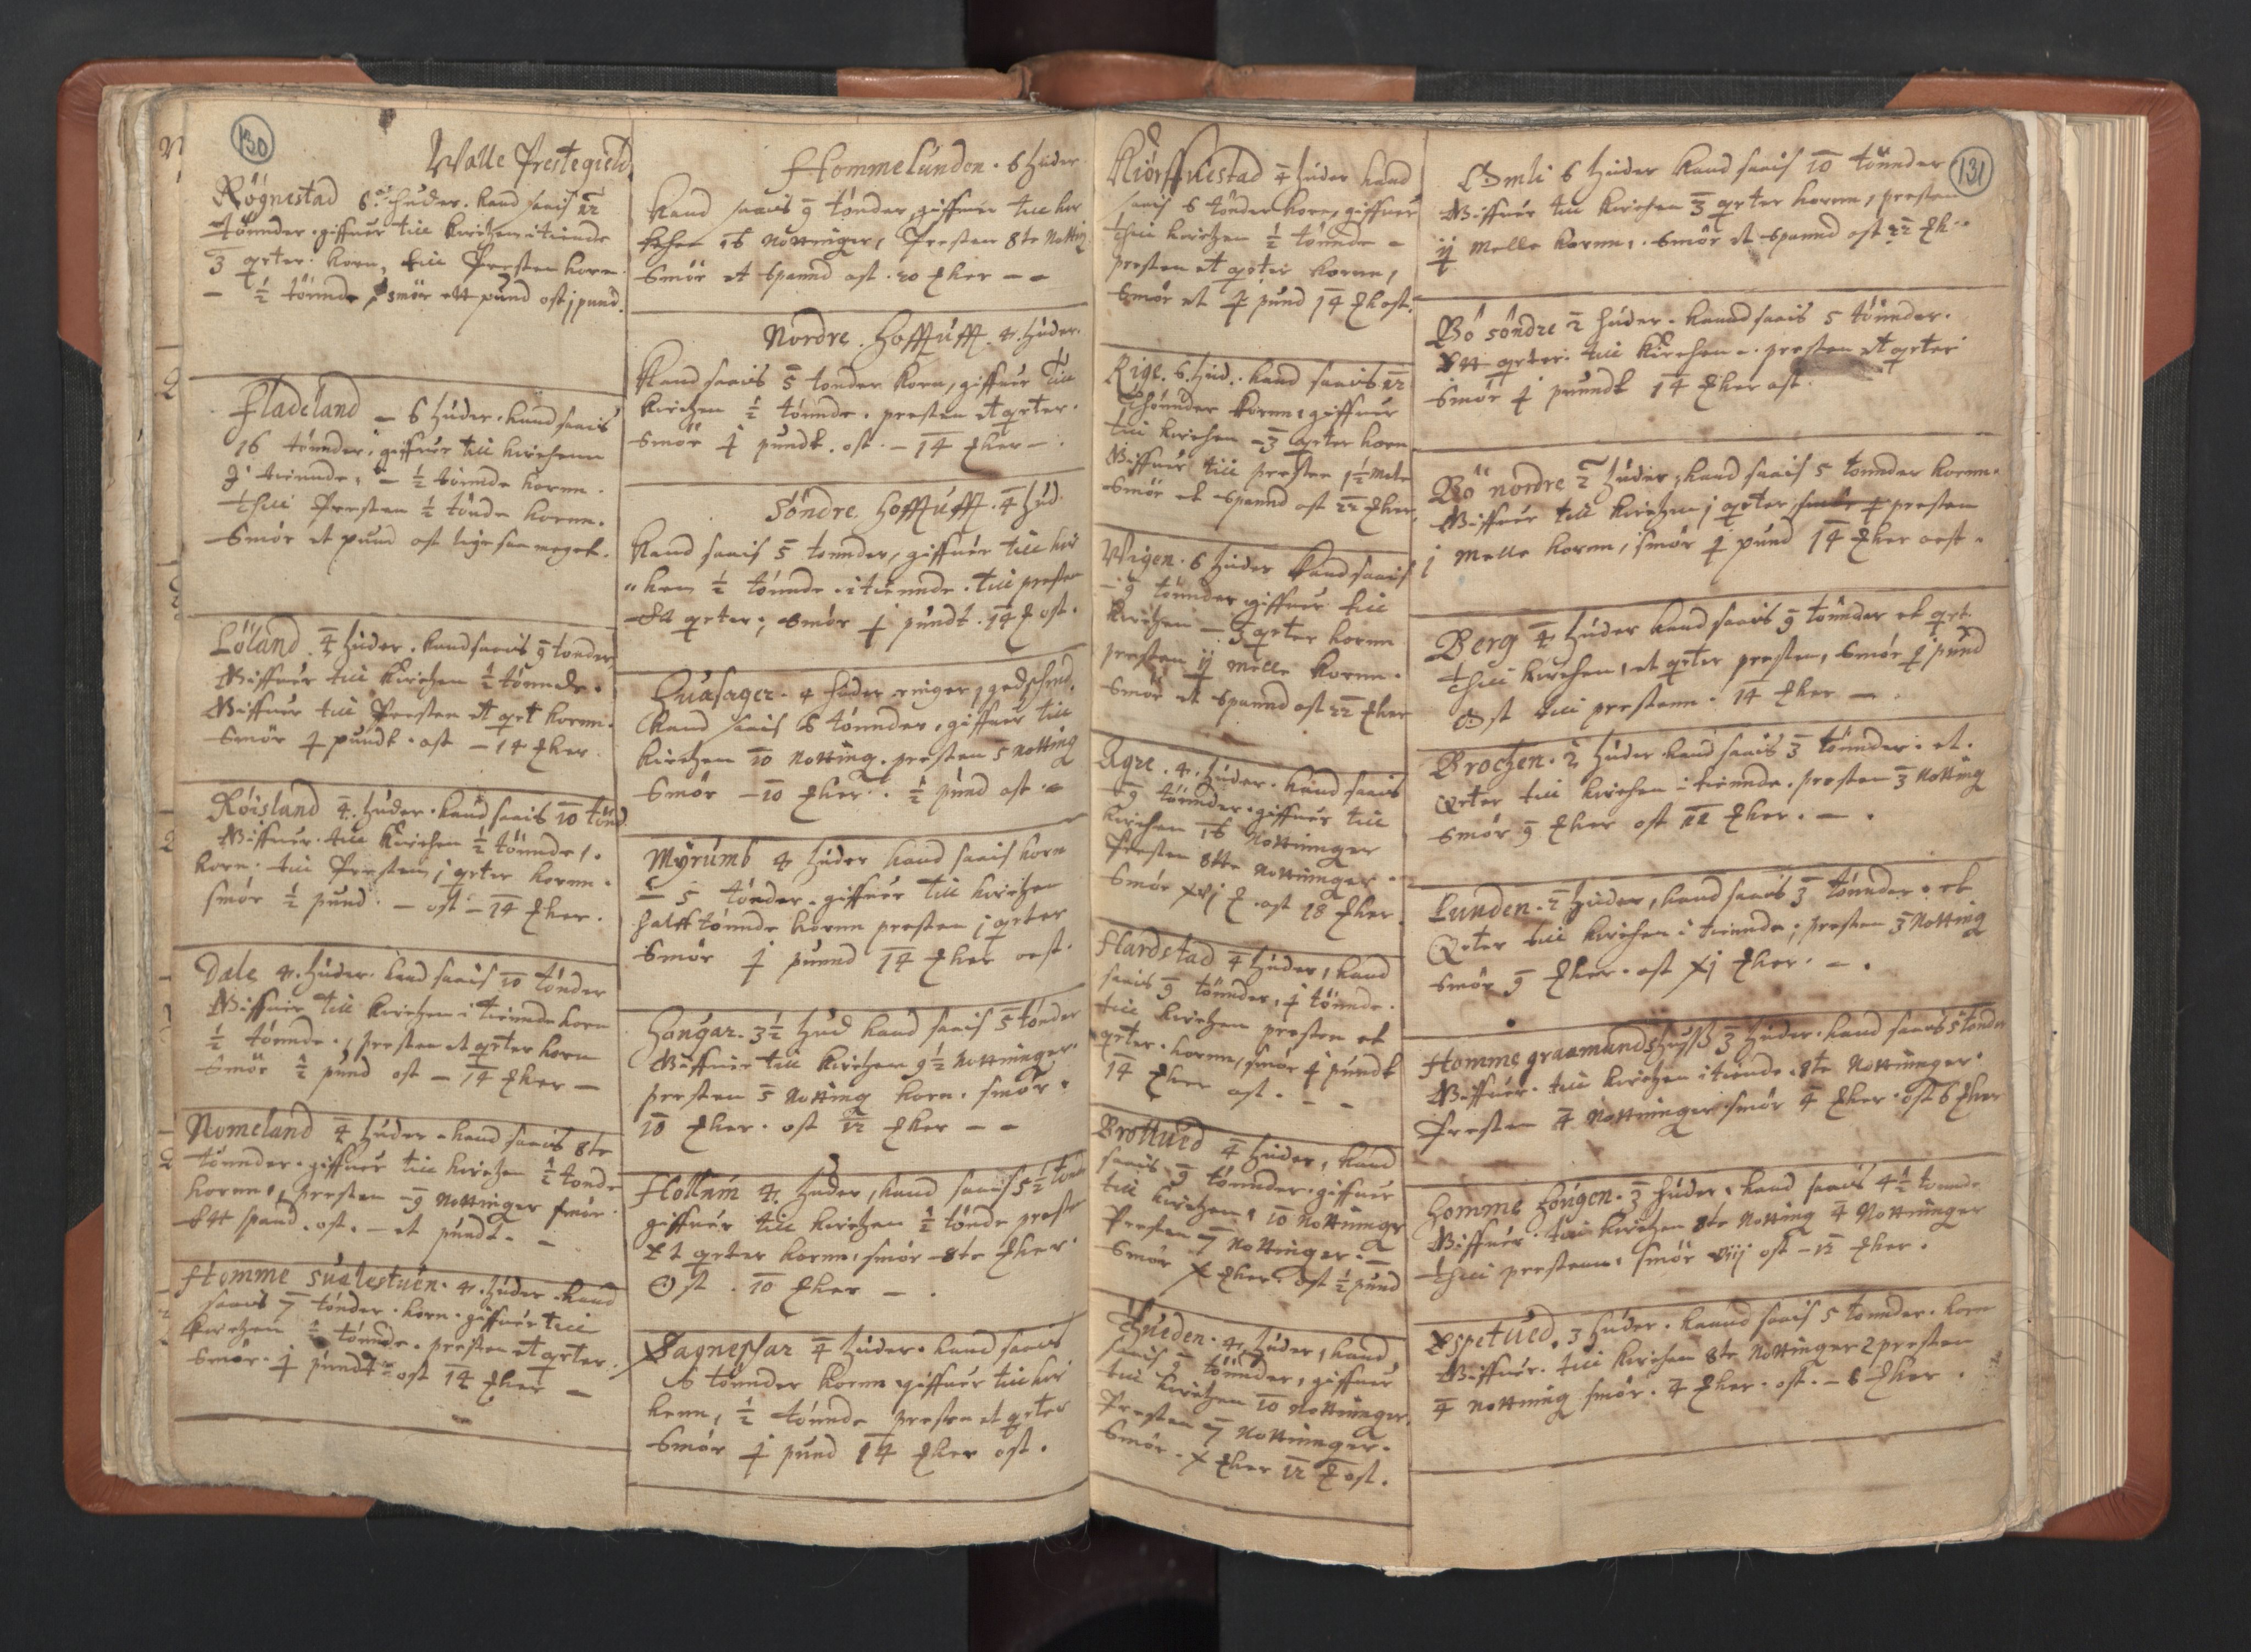 130
Walle Prestegield
Røgnestad 6 huder. kand saais 12
tønnder. giffuer till kirchen i tiende
3 qrter. korn, till Presten korn.
– ½ tønnde, smør ett pund ost j pund.
Fladeland – 6 huder. kand saais
16 tønnder. giffuer till kirchenn
J tiennde, – ½ tønnde kornn.
Thill Presten ½ tønde kornn.
Smør et pund ost lige saa meget.
Løland. 4 huder. kand saais 9 tonder
Giffuer till kirchen ½ tønnde.
Giffuer till Presten et qrt kornn.
Smør ½ pundt. ost – 14 ℔ker.
Røisland 4. huder. kand saais 10 tønd.
Giffuer. till kirchen ½ tønnde,.
korn. till Presten j qrter kornn.
smør ½ pund. – ost – 14 ℔ker.
Dale 4. huder. kand saais 10 tønder
Giffuer till kirchen i tiennde korn
½ tønnde., presten et qrter korn
Smør ½ pund ost – 14 ℔ker –
Nomeland 4 huder. kand saais 8te
tønnder. giffuer till kirchen ½ tonde
kornn, presten – 9 nottinger smør.
ett spand. ost. – et pundt. –
Homme sualestuen. 4. huder. kand
saais 7 tønder. korn. giffuer till
kirchen ½ tønnde. presten et qrter.
Smør. ½ pundt – ost 14 ℔ker –
Hommelunden. 6 huder
Kand saais 9 tønder, giffuer till kir
kchen 16 nottinger, Presten 8te notting
Smør et spannd ost. 20 ℔ker – –
Nordre. Hoffuff. 4. huder.
Kand saais 5 tonder korn, giffuer till
kirchen ½ tønnde. presten et qrter.
Smør ½ pundt. ost. – 14 ℔ker –.
Søndre. Hoffuff. 4 hud.
Kand saais 5 tonnder, giffuer till kir
"ken ½ tønnde. i tiennde. till presten
Et qrter., smør ½ pundt. 14 ℔ ost.
Huasager. 4 huder
Kand saais 6 tønnder, giffuer till
kirchen 10 notting. presten 5 notting
Smør – 10 ℔ker. ½ pund ost. –
Myrumb 4 huder kand saais korn
– 5 tønder. giffuer till kirchen
halff tønnde kornn presten j qrter
Smør ½ punnd 14 ℔ker oest.
Hougar. 3½ hud kand saais 5 tønder
Giffuer till kirchen 9½ nottinger.
presten 5 notting korn. smør.
10 ℔ker. ost 12 ℔ker – –
Hottum 4. huder, kand saais 5½ tond
giffuer till kirchen ½ tønde preste
Et qrter kornn, smør – 8te ℔ker.
Ost. 10 ℔ker –.
Sagnessar 4 huder. kand saais
6 tønnder kornn giffuer till kir
kenn, ½ tønnde presten et qrter
Smør ½ pund 14 ℔ker ost.
Kiørffuestad 4 huder kand
saais 6 tønder korn, giffuer
Thill kirchen ½ tønnde –
presten et qrter kornn,
Smør et ½ pund 14 ℔k ost.
Rige. 6. hud. kand saais 12
Thønnder kornn, giffuer
till kirchen – 3 qrter korn
Giffuer till presten 1½ mele
Smør et spannd ost 22 ℔ker.
Wigen. 6 huder kand saais
– 9 tønnder giffuer till
kirchen – 3 qrter kornn
presten ij melle kornn.
Smør et spannd ost 22 ℔ker
Agre. 4. huder. kand saais
– 9 tønnder. giffuer till
kirchen 16 nottinnger
Presten 8tte nottinger.
Smør xvj ℔. ost 18 ℔ker.
Hardstad 4 huder, kand
saais 9 tønnder, ½ tønnde.
till kirchen presten et
qrter. kornn, smør ½ pundt
14 ℔ker ost. – –
Brottued 4 huder, kand
saais – 9 tønnder. giffuer
till kirchen, 10 nottinger
Presten 7 nottinger. –
Smør x ℔ker. ost ½ pund
Thueden. 4. huder, kand
saais 9 tønnder, giffuer
till kirchen 10 nottinnger.
Presten – 7 nottinnger.
Smør. x ℔ker 12 ℔ ost.
131
Omli 6 huder kand saais 10 tønnder
Giffuer till kirchen 3 qrter kornn, presten
ij melle kornn,. smør et spannd ost 22 ℔k.
Bø søndre 2 huder. kannd saais 5 tønnder.
Ett qrter. till kirchen –. presten et qrter
Smør ½ punndt 14 ℔ker ost.
Bø nordre 2 huder, kand saais 5 tonnder kornn.
Giffuer till kirchen j qrter, presten
j melle kornn, smør ½ pund 14 ℔ker oest.
Berg 4 huder kand saais 9 tønnder et qrt
Thill kirchen, et qrter presten, smør ½ pund
Ost till prestenn. 14 ℔ker –.
Brochen. 2 huder kand saais 3 tønnder. et.
Qrter till kirchen i tiennde. presten 3 notting
Smør 9 ℔ker ost 11 ℔ker. –.
Lunden. 2 huder, kand saais 3 tønnder. et
Qrter till kirchen i tiennde, presten 3 notting
Smør 9 ℔ker. ost xj ℔ker. –.
Homme graamunds huss 3 huder. kand saais 5 tonder
Giffuer. till kirchen i tiende. 8te nottinnger.
Presten 4 nottinnger. smør 4 ℔ker. ost 6 ℔ker
Homme hougen. 3 huder. kand saais 4½ tonnde
Giffuer. till kirchen 8te notting 4 nottinnger
Thill prestenn, smør viij ost – 12 ℔ker.
Espetued. 3 huder. kannd saais 5 tonnder. korn
Giffuer. till kirchen 8te nottinger 2 presten
4 notting smør. 4 ℔ker. ost. – 6 ℔ker.